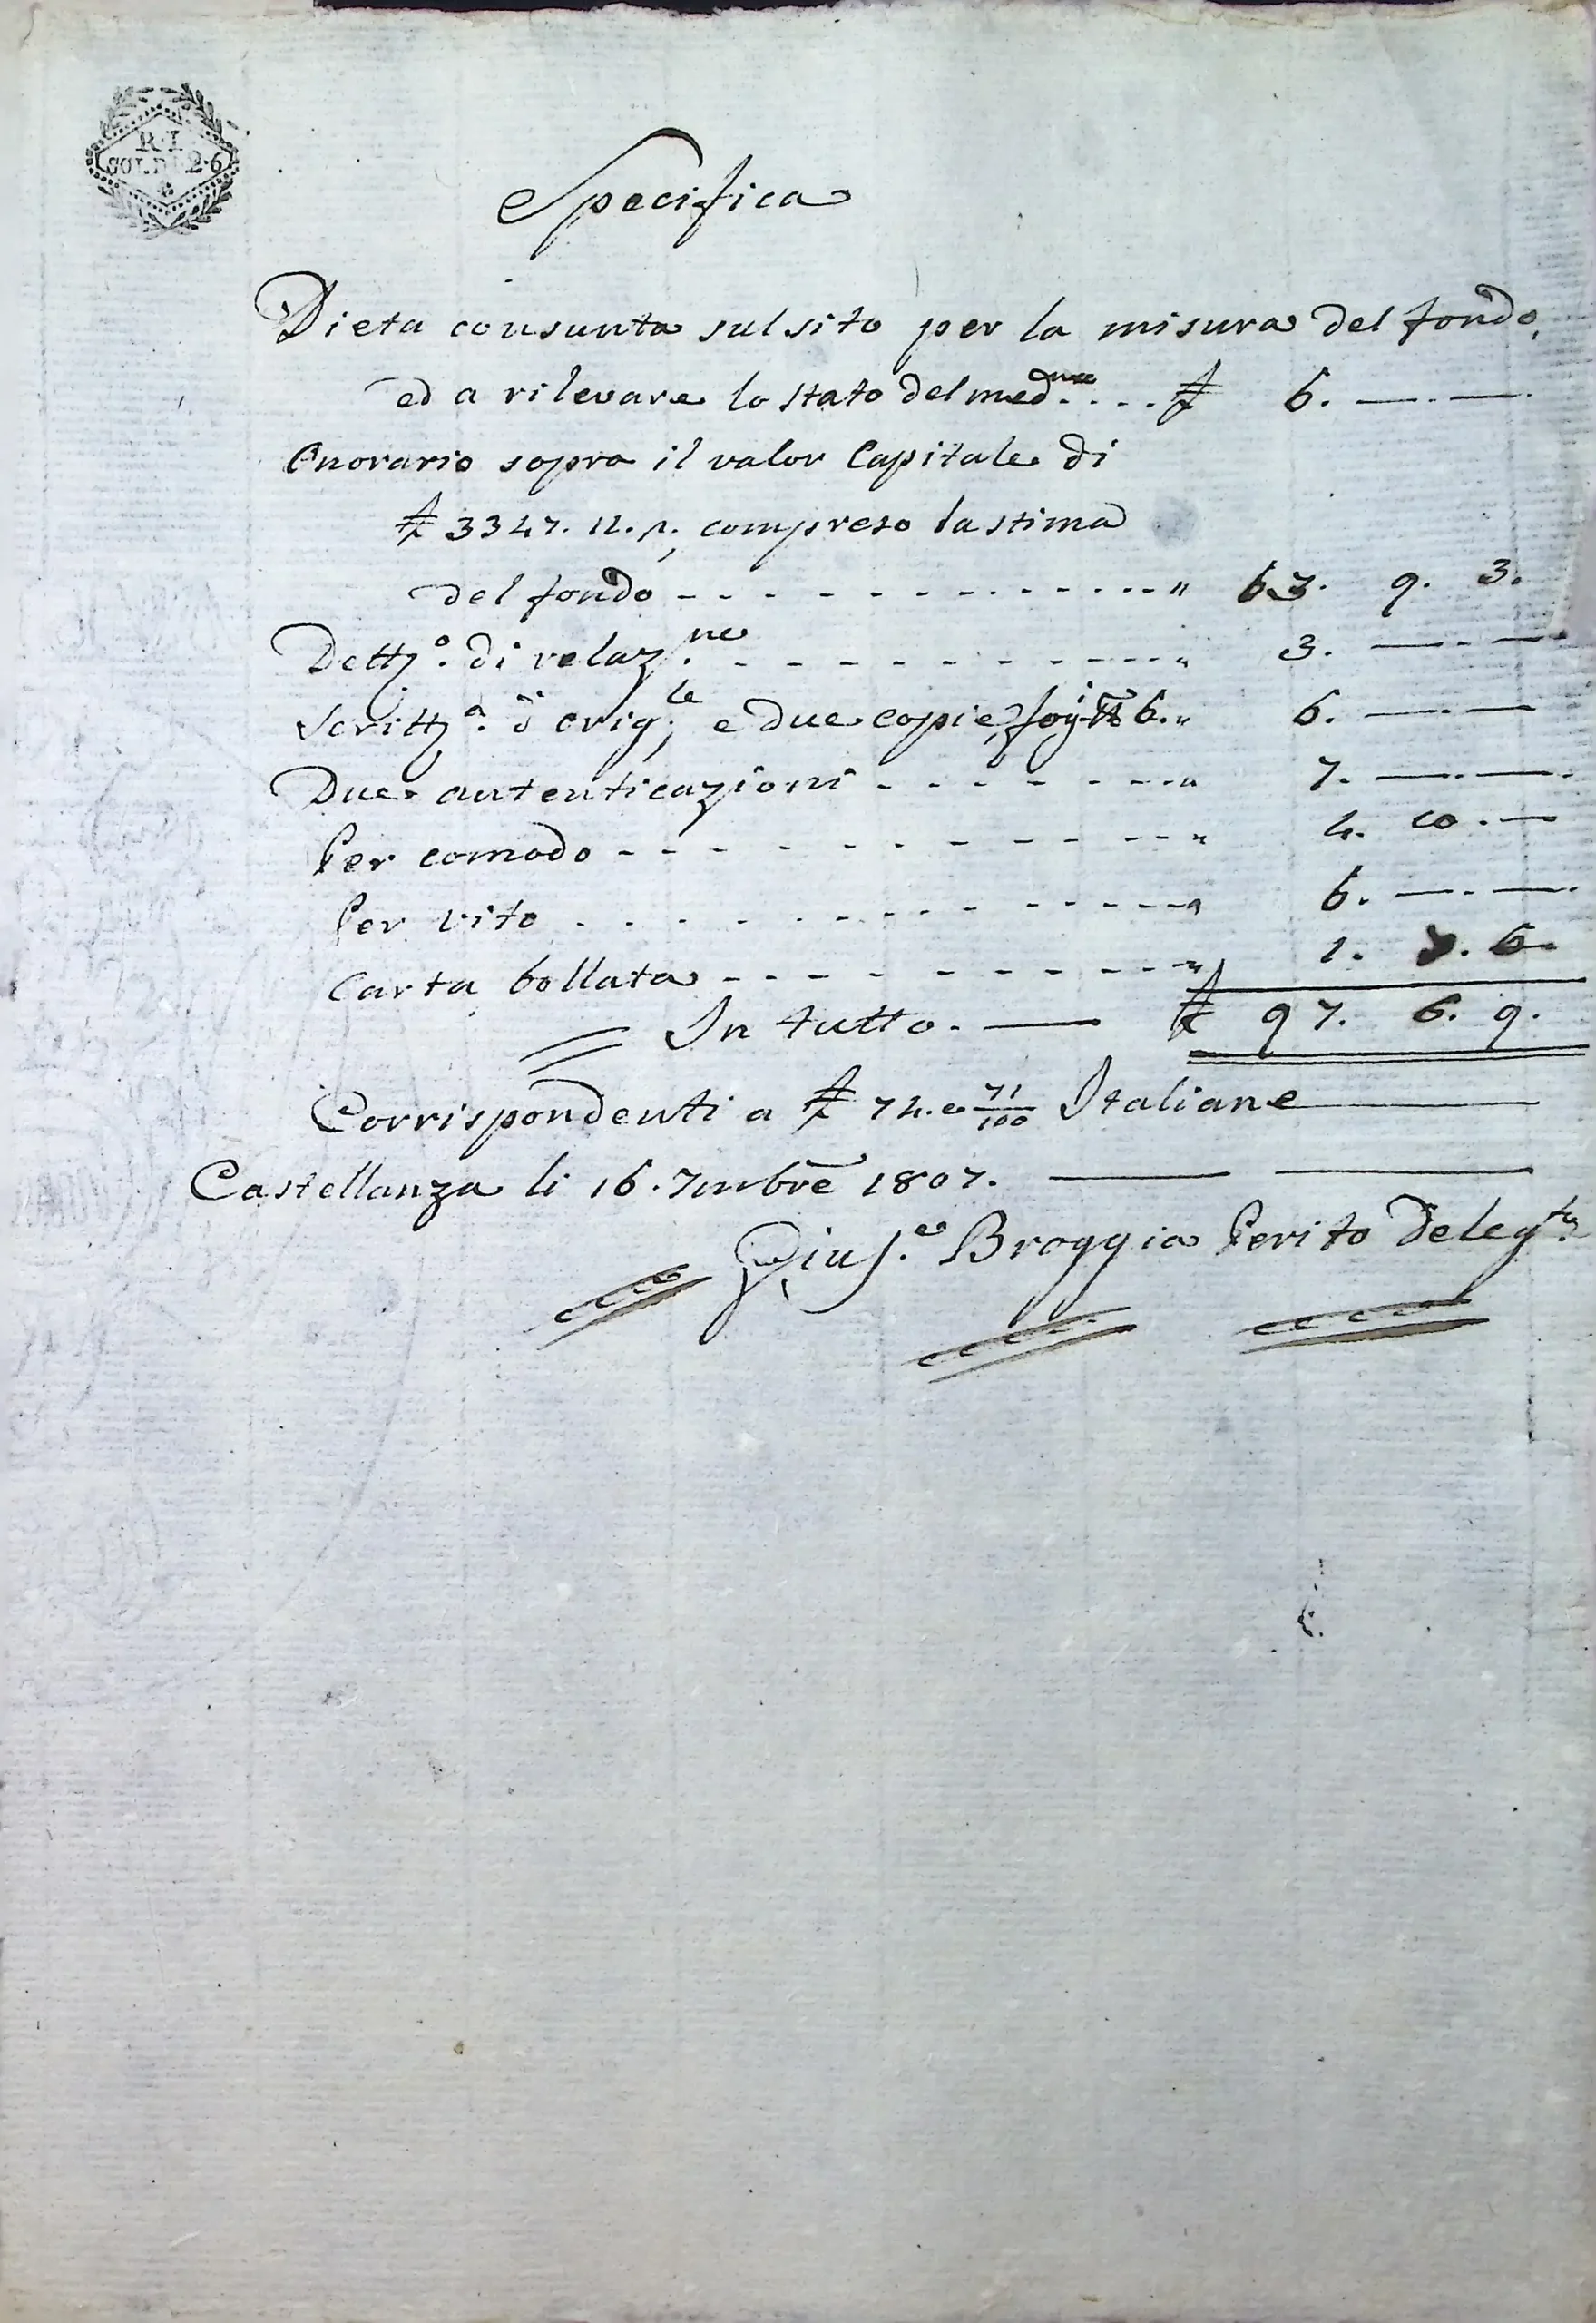 R·I
SOLDI 2·6
Specifica
Dieta consunta sul sito per la misura del fondo,
ed a rilevare lo stato del med.mo .... £ 6. — . — .
Onorario sopra il valor Capitale di
£ 3347. 12. compreso la stima
del fondo - - - - - - - - - - - - " 63. 9. 3.
Dettz.o di relaz.ne - - - - - - - - - - " 3. — . —
Scrittz.a d'orig.le e due copie, fog.i N. 6. " 6. — . —
Due autenticazioni - - - - - - - - " 7. — . — .
Per comodo - - - - - - - - - - - " 4. 10 . —
Per vito - - - - - - - - - - - - " 6. — . — .
Carta bollata - - - - - - - - - - " 1. 7. 6.
In tutto. — £ 97. 6. 9.
Corrispondenti a £ 74. e 71/100 Italiane
Castellanza li 16. 7mbre 1807.
Gius.e Broggia Perito Deleg.to